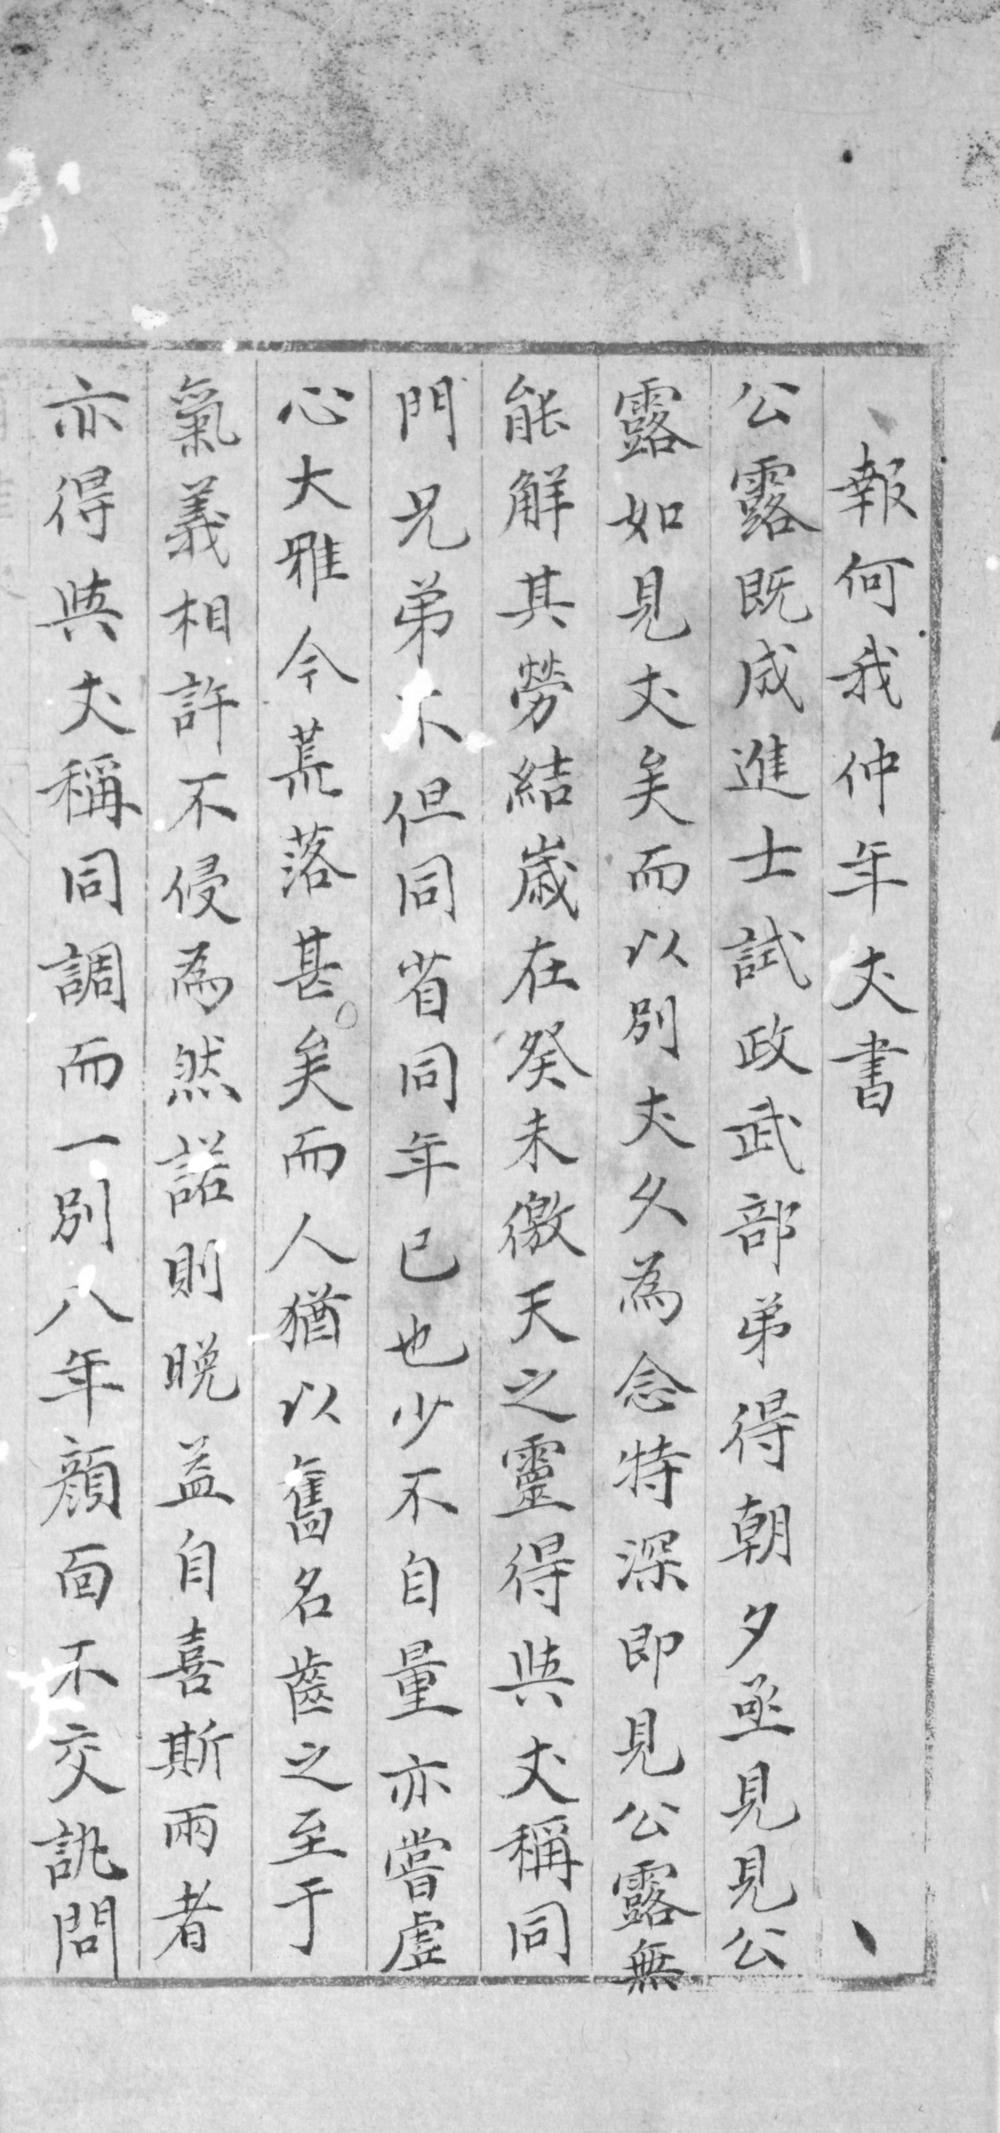 報何我仲年丈書
公露既成進士試政武部弟得朝夕亟見見公
露如見丈矣而以別丈久為念特深即見公露無
能解其勞結歲在癸未徼天之靈得與丈稱同
門兄弟不但同省同年已也少不自量亦嘗虛
心大雅今荒落甚矣而人猶以舊名齒之至于
氣義相許不侵為然諾則晚益自喜斯兩者
亦得與丈稱同調而一別八年顏面不交訊問